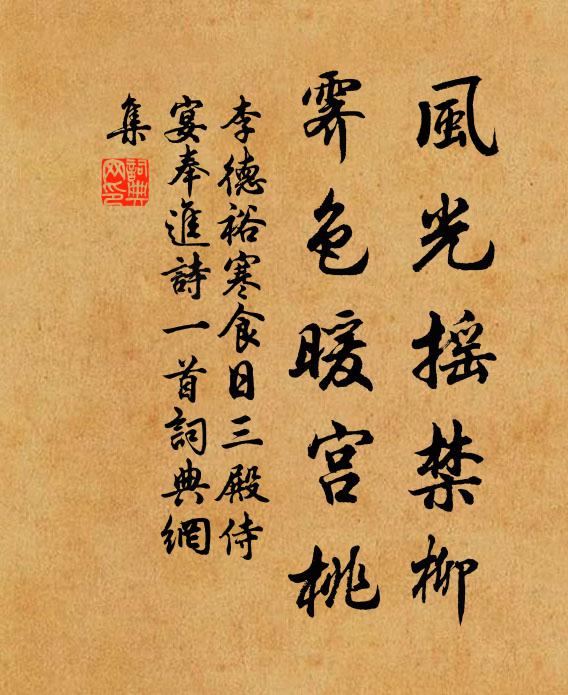 風光搖禁柳
霽色暖宮桃
李德裕寒食日三殿侍
宴奉進詩一首詞典網
集
詞典
网印